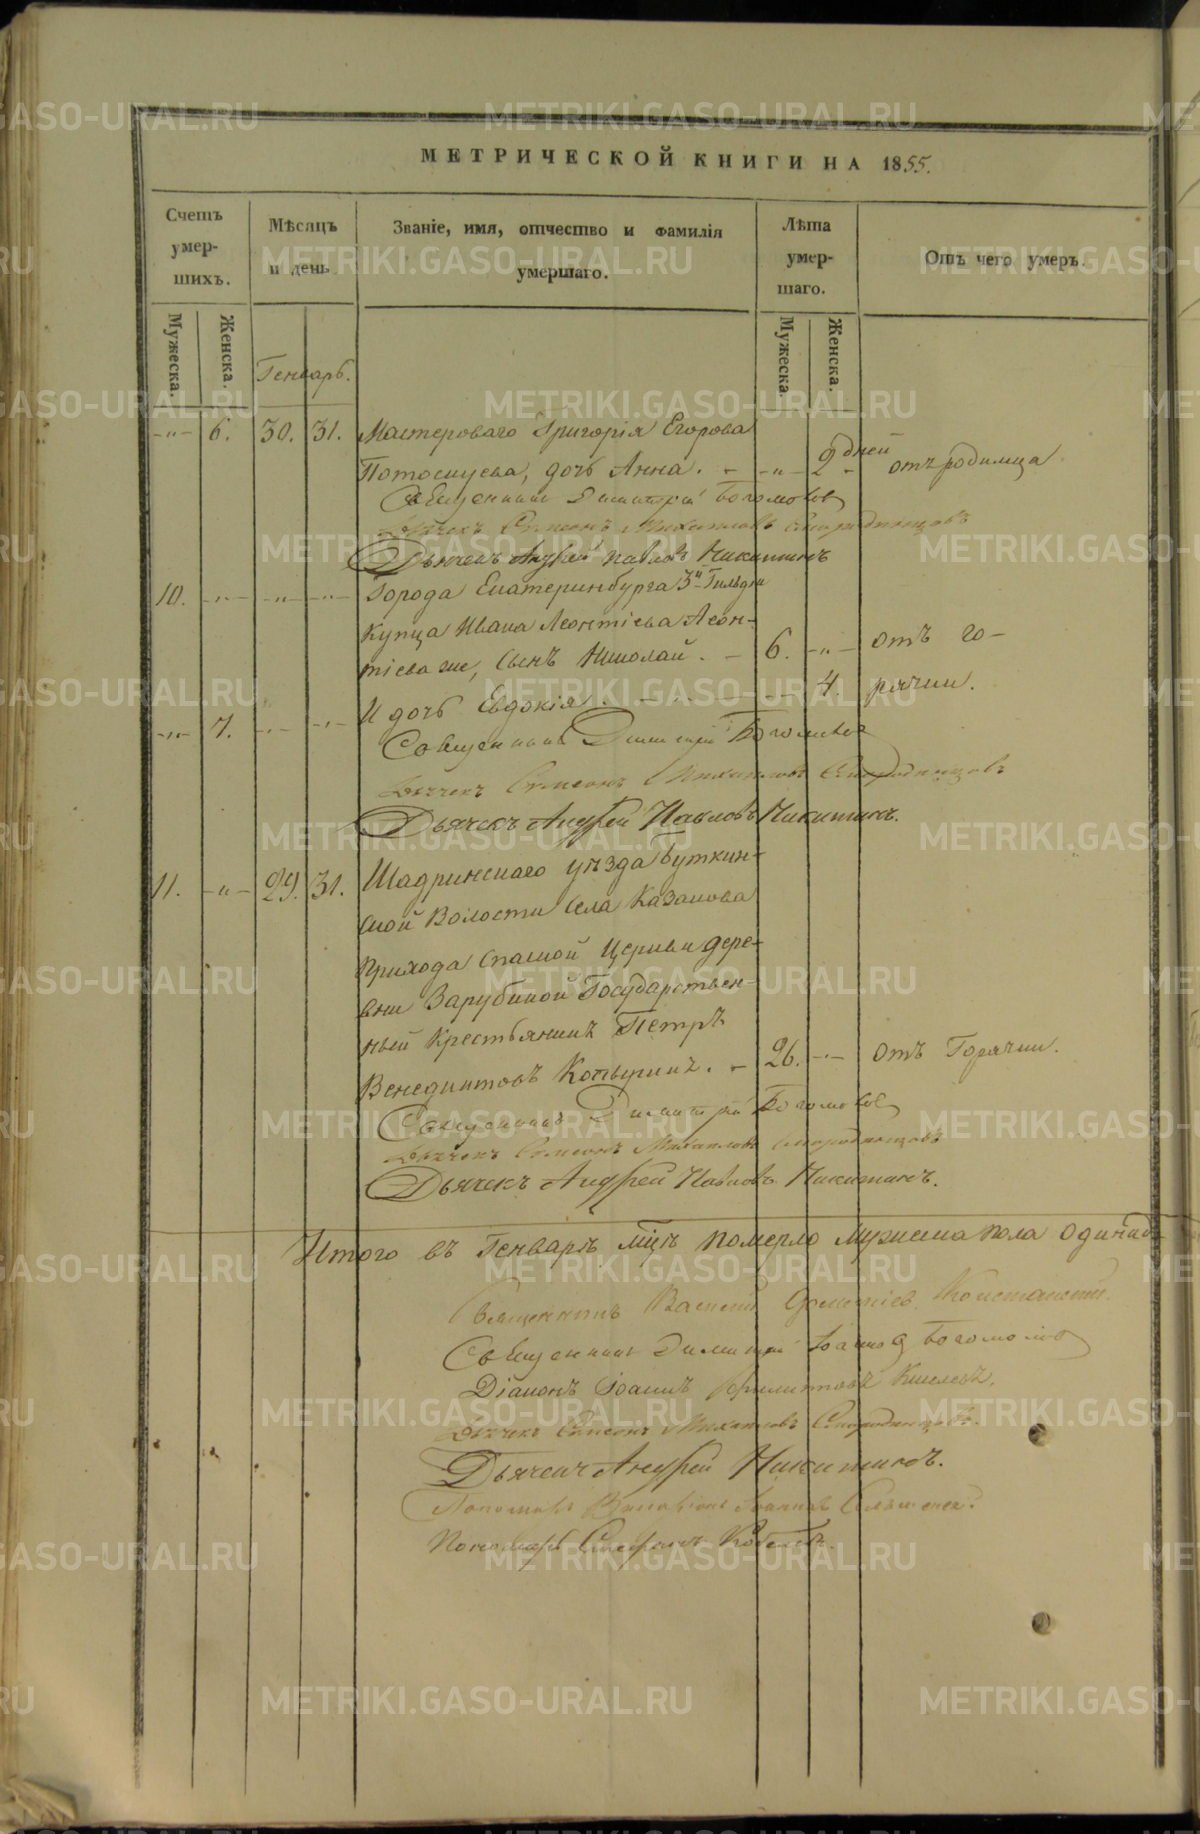 МЕТРИЧЕСКОЙ КНИГИ НА 1855.
Счетъ умер-шихъ.
Мѣсяцъ и день
Званіе, имя, отчество и фамилія умершаго.
Лѣта умер-шаго.
Отъ чего умеръ.
Мужеска. Женска. Мужеска. Женска.
Генварь.
-"- 6. 30. 31. Мастероваго Григорія Егорова
дней
Потоскуева, дочь Анна. - -"- 2 отъ родимца
Священникъ Димитрій Богомолов
Дьячекъ Симеонъ Михаиловъ Смородинцовъ
Дьячекъ Андрей Павловъ Никитинъ
10. -"- -"- -"- Города Екатеринбурга 3й Гильдіи
купца Ивана Леонтіева Леон-
тіева же, сынъ Николай. - 6. -"- отъ го-
И дочь Евдокія. 4. рячки.
-"- 7. -"- -"-
Священникъ Димитрій Богомолов
Дьячекъ Симеонъ Михаиловъ Смородинцовъ
Дьячекъ Андрей Павловъ Никитинъ.
11. -"- 29. 31. Шадринскаго уѣзда Буткин-
ской Волости села Казакова
прихода Спаской Церкви дере-
вни Зарубиной Государствен-
ный Крестьянинъ Петръ
Венедиктовъ Копыринъ. - 26. -"- отъ Горячки.
Священникъ Димитрій Богомолов
Дьячекъ Симеонъ Михаиловъ Смородинцовъ
Дьячекъ Андрей Павловъ Никитинъ.
Итого въ Генварѣ мцѣ померло мужеска пола одинад
Священникъ Василій
Священникъ Димитрій Іоаннов Богомолов
Діаконъ Іоаннъ Киселевъ.
Дьячекъ Симеонъ Михаиловъ Смородинцовъ.
Дьячекъ Андрей Никитинъ.
Пономарь
Пономарь Стефанъ
METRIKI.GASO-URAL.RU